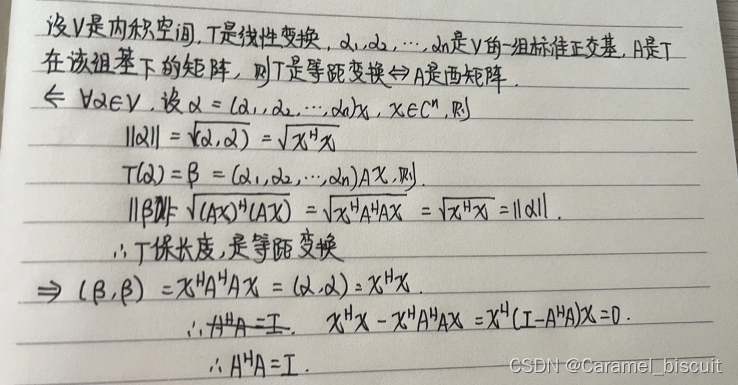 设V是内积空间,T是线性变换,α₁,α₂,…,αn是V的一组标准正交基,A是T
在该组基下的矩阵,则T是等距变换⇔A是酉矩阵.
⇐ ∀α∈V,设α=(α₁,α₂,…,αn)x,x∈Cⁿ,则
||α||=√(α,α)=√xᴴx
T(α)=β=(α₁,α₂,…,αn)Ax,则.
||β||=√(Ax)ᴴ(Ax)=√xᴴAᴴAx=√xᴴx=||α||.
∴T保长度,是等距变换
⇒(β,β)=xᴴAᴴAx=(α,α)=xᴴx.
∴AᴴA=I. xᴴx-xᴴAᴴAx=xᴴ(I-AᴴA)x=0.
∴AᴴA=I.
CSDN @Caramel_biscuit